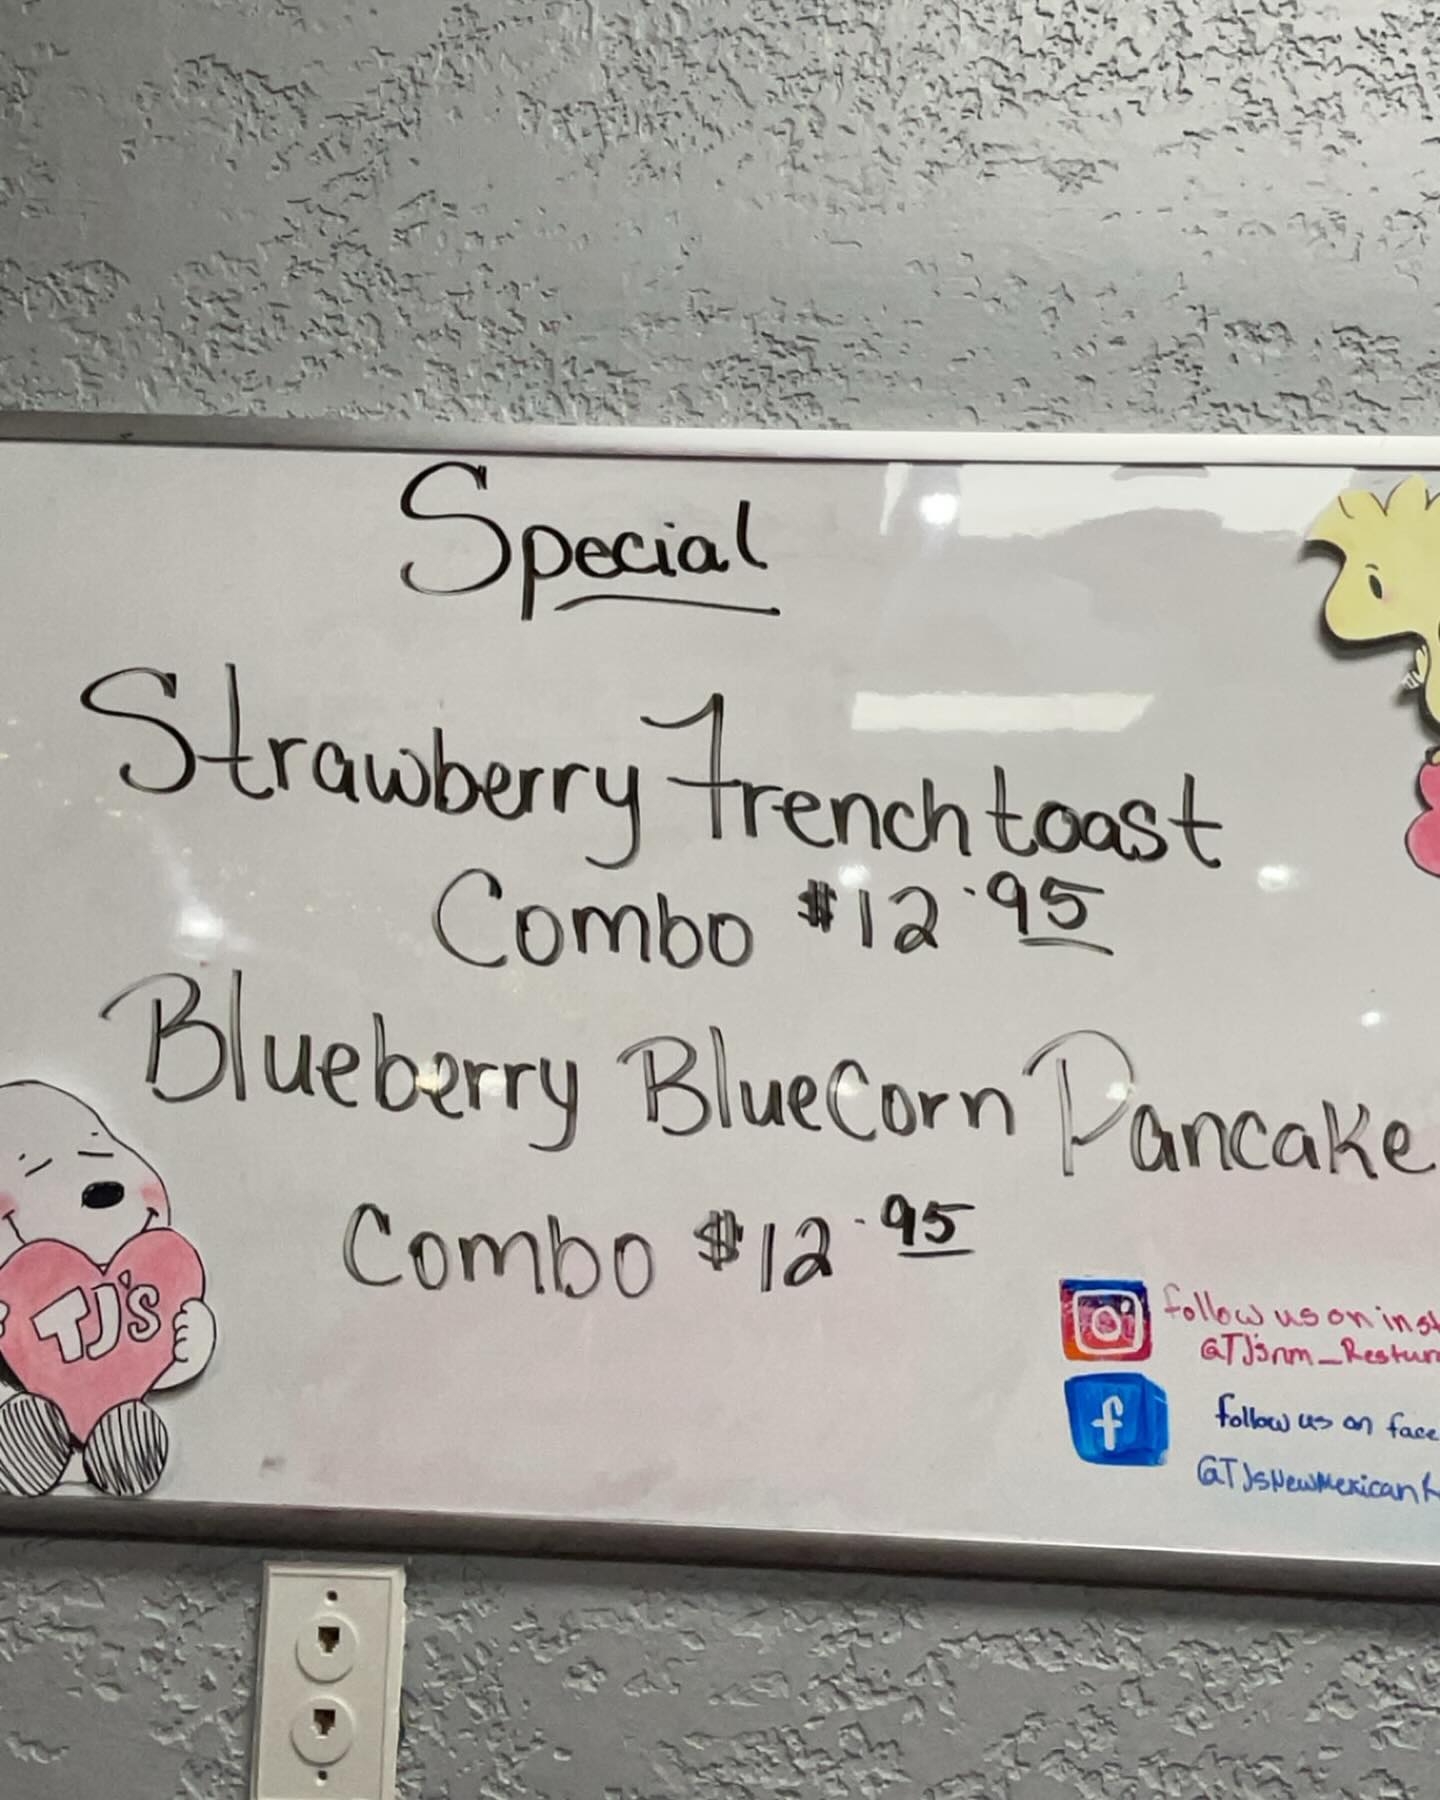 Special
Strawberry French toast
Combo $12.95
Blueberry Blue Corn Pancake
Combo $12.95
TJ's
follow us on inst
@TJ'snm_Restur
follow us on face
@TJsNewMexican